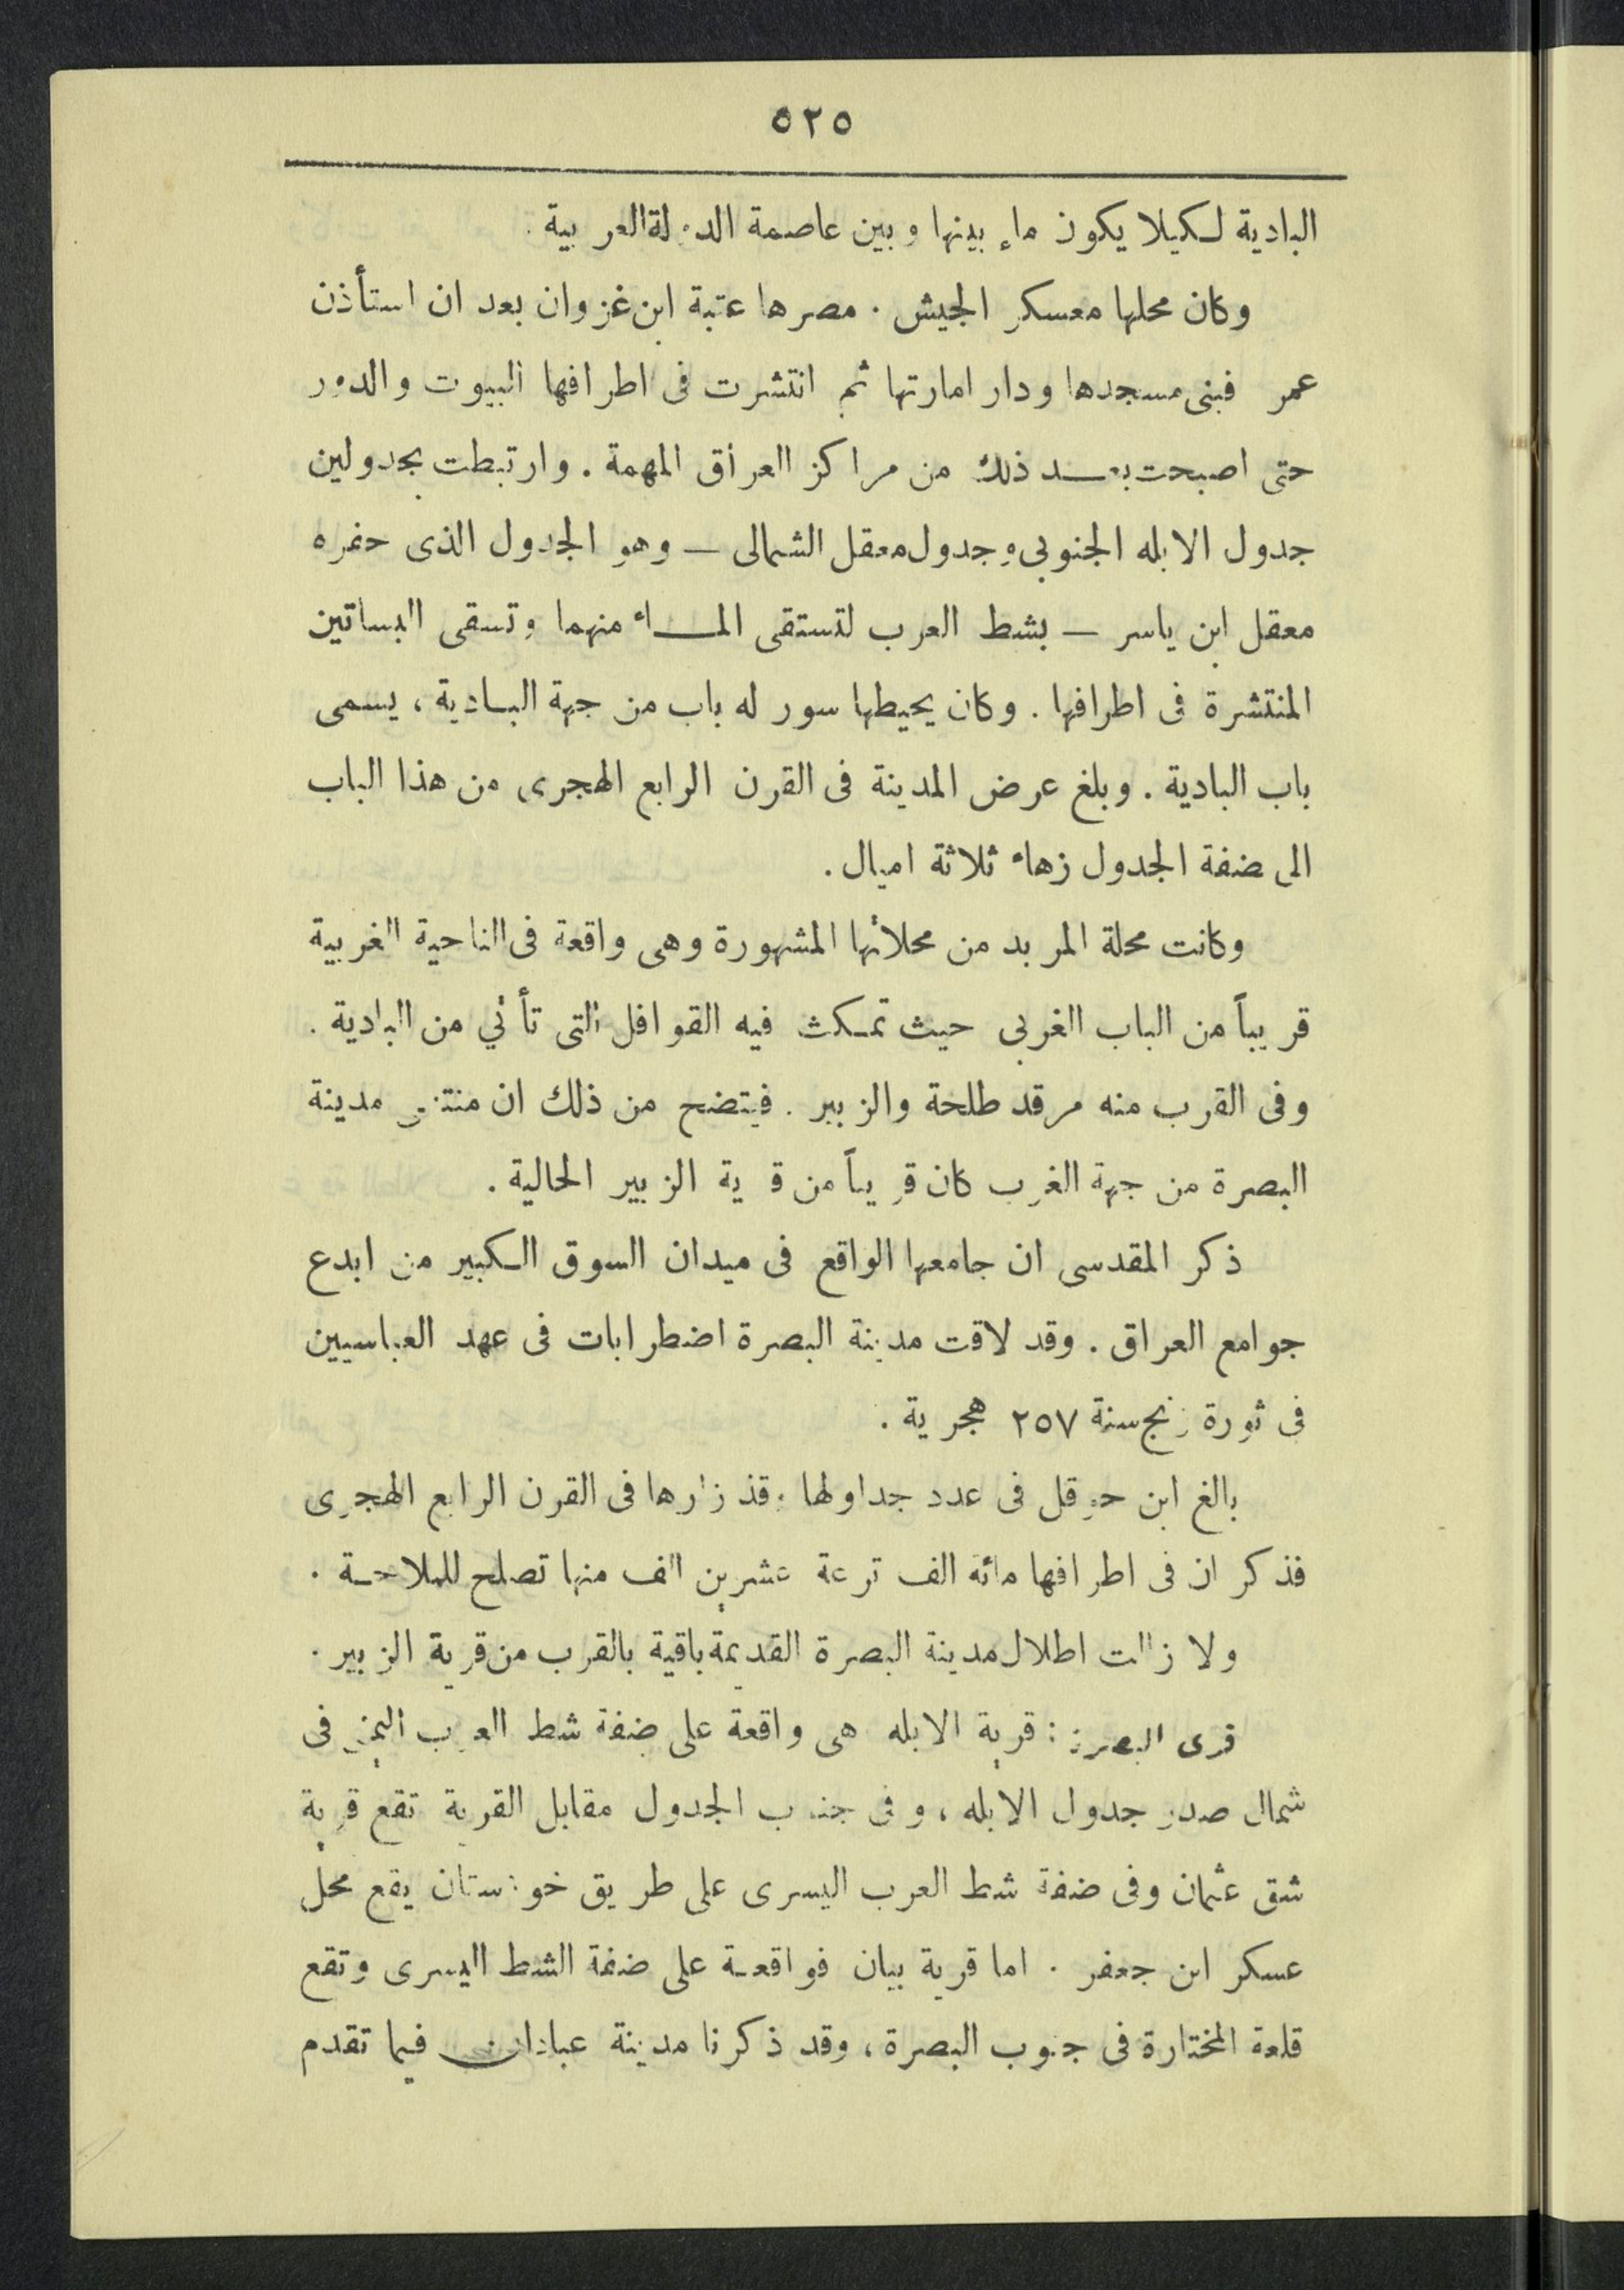 ٥٢٥
البادية لكيلا يكون ماء بينها وبين عاصمة الدولة العربية .
وكان محلها معسكر الجيش . مصرها عتبة ابن غزوان بعد ان استأذن
عمر فبنى مسجدها ودار امارتها ثم انتشرت فى اطرافها البيوت والدور
حتى اصبحت بعد ذلك من مراكز العراق المهمة . وارتبطت بجدولين
جدول الابله الجنوبي وجدول معقل الشمالى — وهو الجدول الذى حفره
معقل ابن ياسر — بشط العرب لتستقى الماء منهما وتسقى البساتين
المنتشرة فى اطرافها . وكان يحيطها سور له باب من جهة البادية ، يسمى
باب البادية . وبلغ عرض المدينة فى القرن الرابع الهجرى من هذا الباب
الى ضفة الجدول زهاء ثلاثة اميال .
وكانت محلة المربد من محلاتها المشهورة وهى واقعة فى الناحية الغربية
قريباً من الباب الغربى حيث تمكث فيه القوافل التى تأتي من البادية .
وفى القرب منه مرقد طلحة والزبير . فيتضح من ذلك ان منتهى مدينة
البصرة من جهة الغرب كان قريباً من قرية الزبير الحالية .
ذكر المقدسى ان جامعها الواقع فى ميدان السوق الكبير من ابدع
جوامع العراق . وقد لاقت مدينة البصرة اضطرابات فى عهد العباسيين
فى ثورة زنج سنة ٢٥٧ هجرية .
بالغ ابن حوقل فى عدد جداولها وقد زارها فى القرن الرابع الهجرى
فذكر ان فى اطرافها مائة الف ترعة عشرين الف منها تصلح للملاحة .
ولا زالت اطلال مدينة البصرة القديمة باقية بالقرب من قرية الزبير .
قرى البصرة : قرية الابله هى واقعة على ضفة شط العرب اليمنى فى
شمال صدر جدول الابله ، وفى جنوب الجدول مقابل القرية تقع قرية
شق عثمان وفى ضفة شط العرب اليسرى على طريق خوزستان يقع محل
عسكر ابن جعفر . اما قرية بيان فواقعة على ضفة الشط اليسرى وتقع
قلعة المختارة فى جنوب البصرة ، وقد ذكرنا مدينة عبادان فيما تقدم